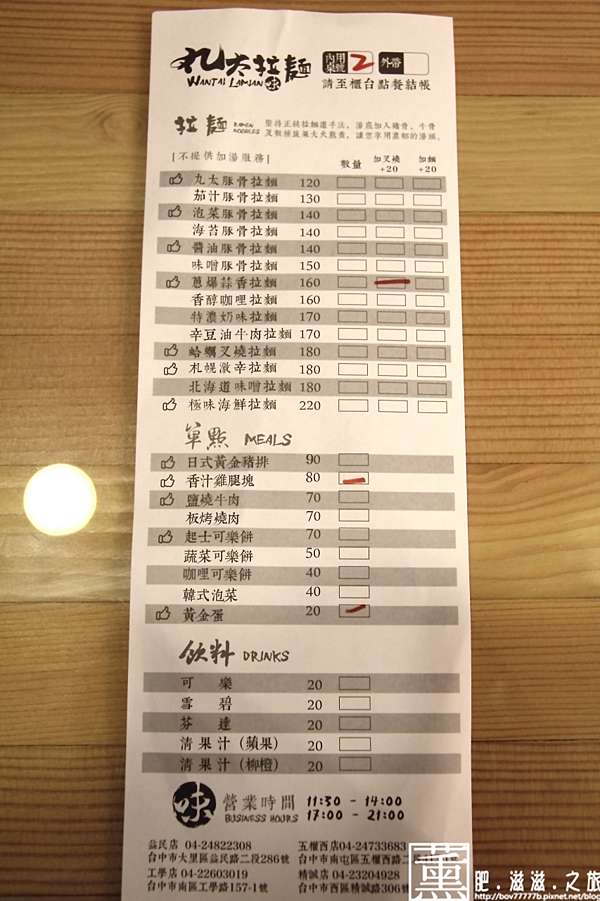 丸太拉麵 內用桌號 2 外帶
WANTAI LAMIAN 請至櫃台點餐結帳
拉麵 RAMEN NOODLES
[不提供加湯服務] 數量 加叉燒+20 加麵+20
丸太豚骨拉麵 120
茄汁豚骨拉麵 130
泡菜豚骨拉麵 140
海苔豚骨拉麵 140
醬油豚骨拉麵 140
味噌豚骨拉麵 150
蔥爆蒜香拉麵 160
香醇咖哩拉麵 160
特濃奶味拉麵 170
辛豆油牛肉拉麵 170
蛤蠣叉燒拉麵 180
札幌激辛拉麵 180
北海道味噌拉麵 180
極味海鮮拉麵 220
單點 MEALS
日式黃金豬排 90
香汁雞腿塊 80
鹽燒牛肉 70
板烤燒肉 70
起士可樂餅 70
蔬菜可樂餅 50
咖哩可樂餅 40
韓式泡菜 40
黃金蛋 20
飲料 DRINKS
可樂 20
雪碧 20
芬達 20
清果汁(蘋果) 20
清果汁(柳橙) 20
味 營業時間 11:30 - 14:00
BUSINESS HOURS 17:00 - 21:00
益民店 04-24822308 五權西店04-24733683
台中市大里區益民路二段286號 台中市南屯區五權西路二段
工學店 04-22603019 精誠店 04-23204928
台中市南區工學路157-1號 台中市西區精誠路306號
薰 肥.滋滋.之旅
http://bov77777b.pixnet.net/blog